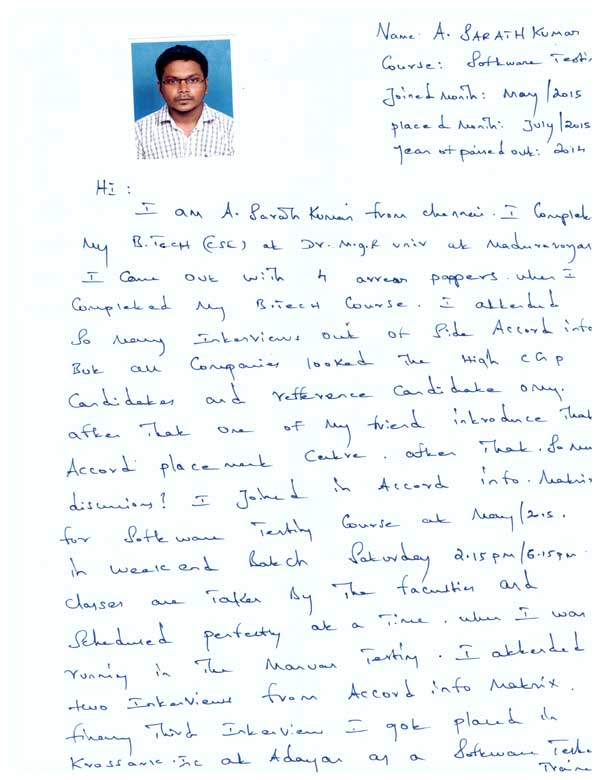 Name: A. SARATH KUMAR
Course: Software Testin
Joined Month: May/2015
placed Month: July/2015
Year of passed out: 2014
Hi :
I am A. Sarath Kumar from chennai. I Complet
My B.TECH (CSE) at Dr. M.g.R univ at Maduravoyar
I Come out with 4 arrear pappers. when I
Completed My B.TECH Course. I attended
So Many Interviews out of Side Accord info
But all Companies looked The High CGP
Candidates and refference Candidate only.
after That one of My friend introduce That
Accord placement Centre. after That. So mu
discussions! I Joined in Accord info. Matrix
for Software Testing Course at May/2015.
in weekend Batch Saturday 2.15pm/6.15pm
Classes are Taken By The faculties and
Scheduled perfectly at a Time. when I was
running in The Manual Testing. I attended
two Interviews from Accord info Matrix.
finally Third Interview I got placed in
Krossark Inc at Adayar as a Software Teste
Traine